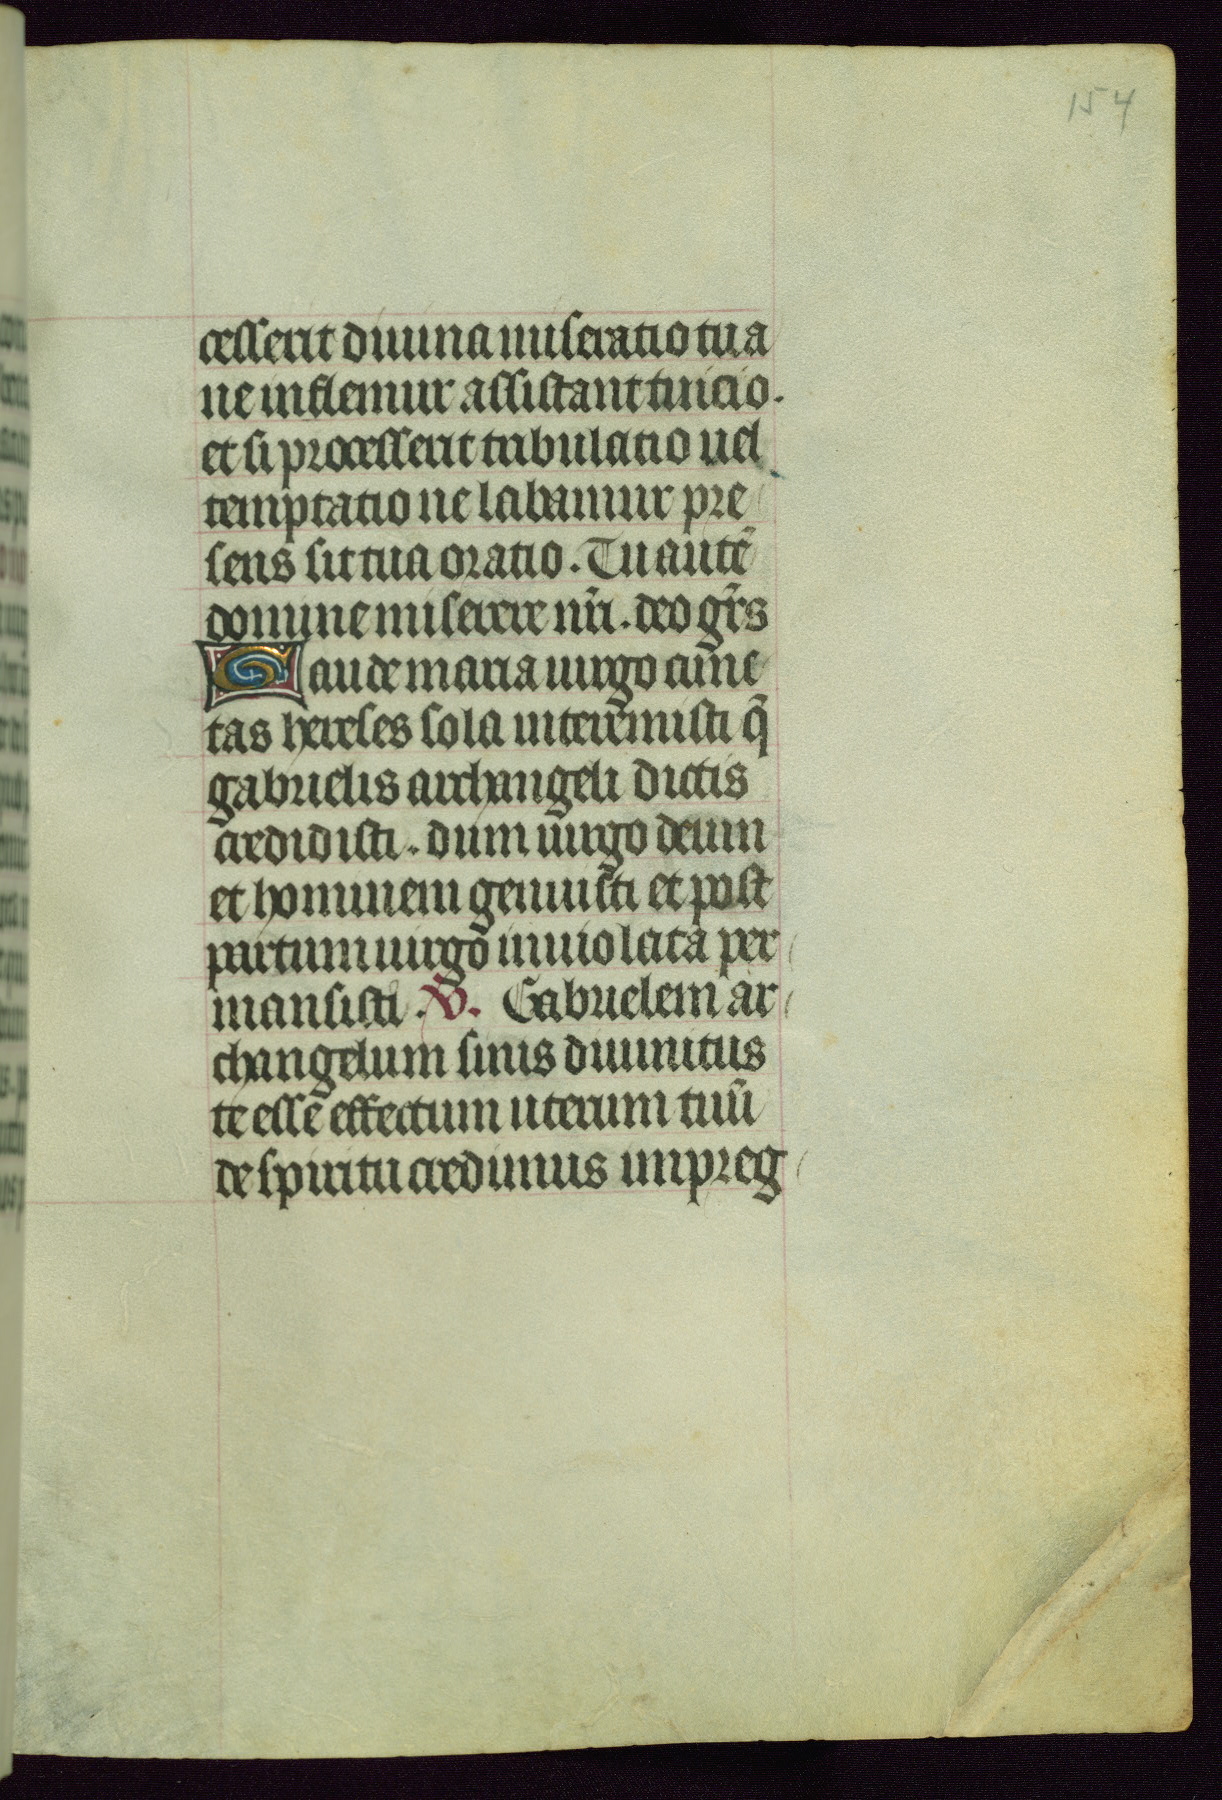 154
cesserit diuina miseratio tua
ne inflemur assistant tuicio.
et si processerit tribulatio uel
temptatio ne labamur pre
sens sit tua oratio. Tu autē
domine miserere nr̄i. deo gr̄s
Gaude maria uirgo cūnc
tas hereses sola interēmisti q̄
gabrielis archangeli dictis
credidisti. dum uirgo deum
et hominem genuisti et post
partum uirgo inuiolata per
mansisti. V. Gabrielem ar
changelum simus diuinitus
te esse effectum uterum tuū
de spiritu credimus impreg